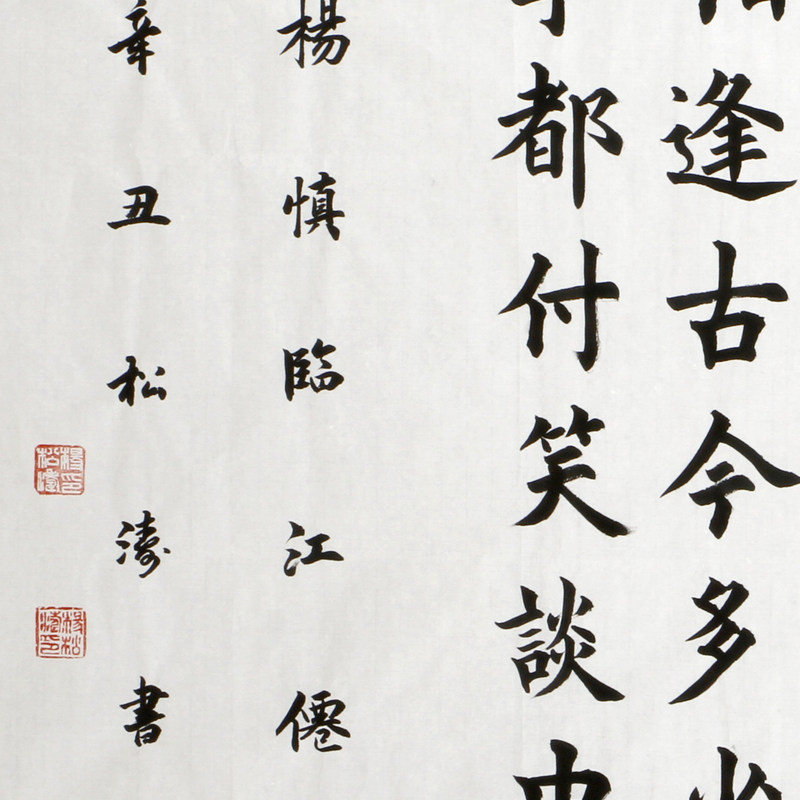 逢古今多少
事都付笑談中
楊慎臨江僊
辛丑松濤書
楊松濤印
楊松濤印